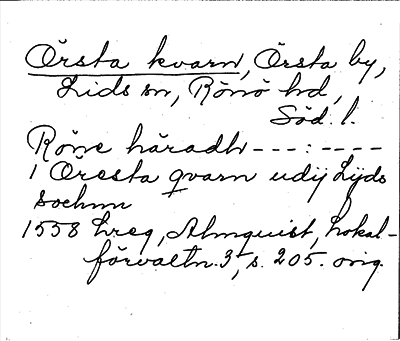 Örsta kvarn, Örsta by,
Lids sn, Rönö hd,
Söd. l.
Röne häradh ---:----
1 Öresta qvarn udij Lijds
sochnn
1558 Lreg, Almquist, Lokal-
förvaltn. 3, s. 205. orig.